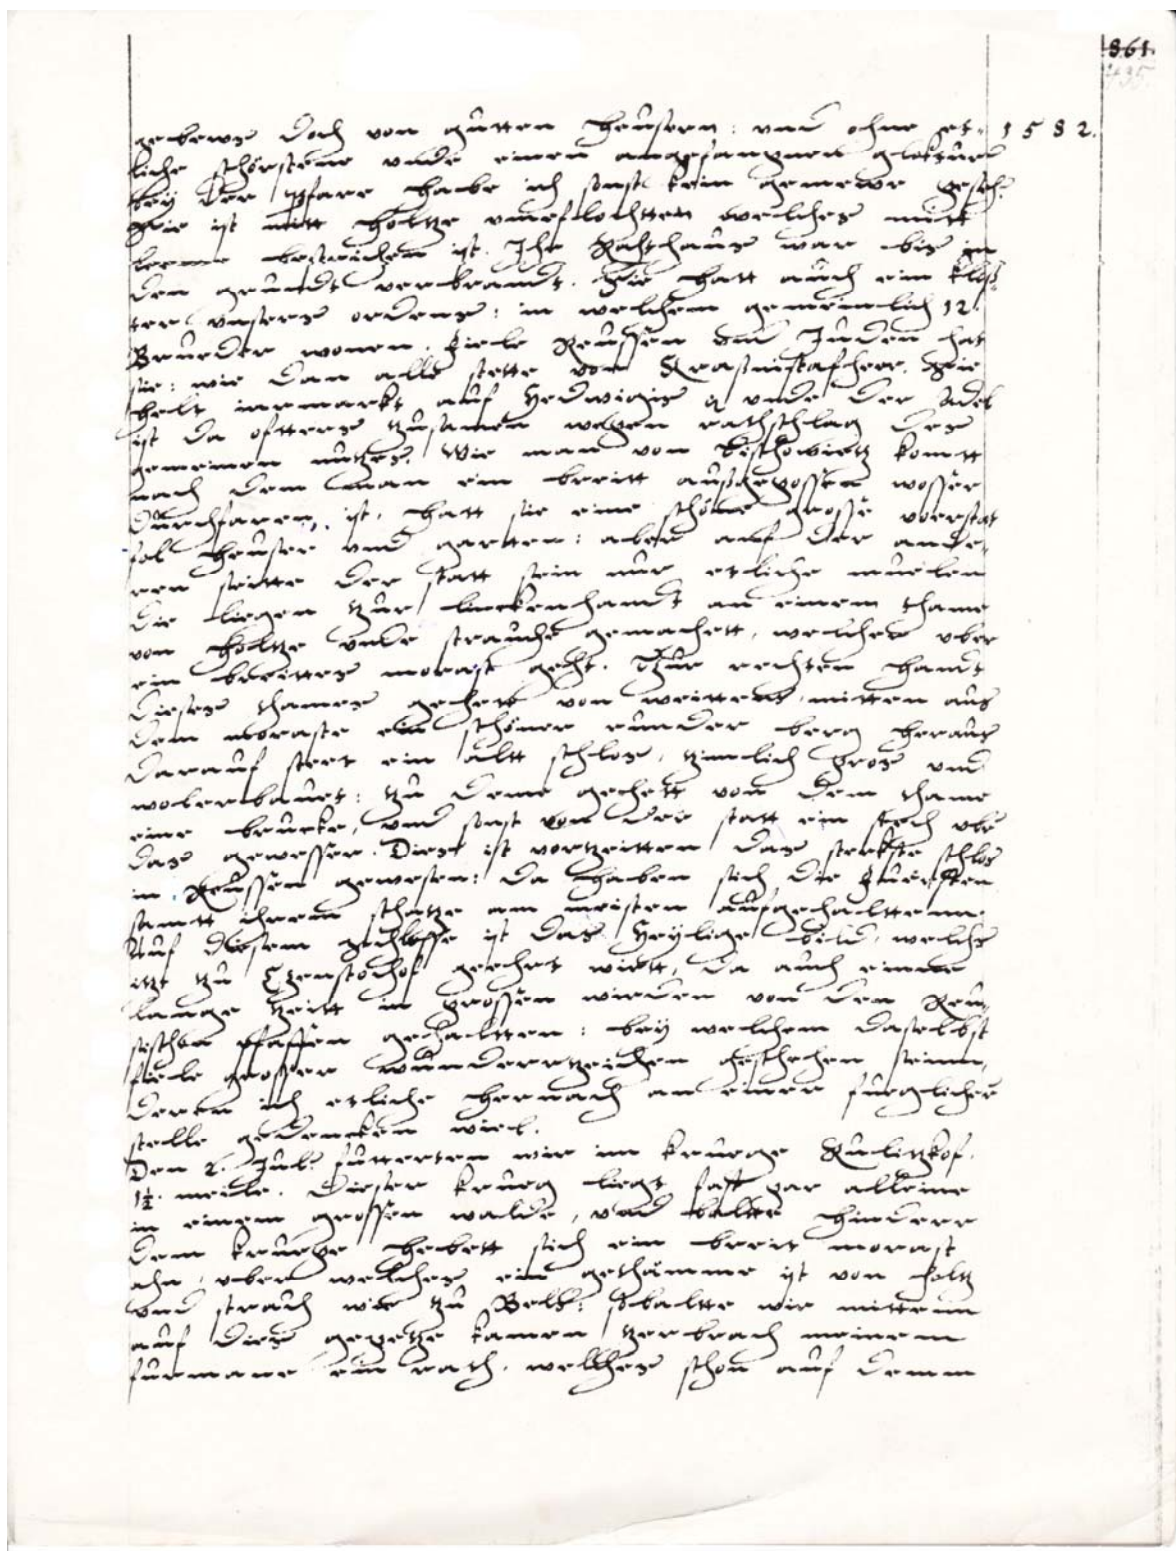 861.
435.
1582.
gebews doch von gutten heusern: und ohne et-
liche schörstene unde einen angefangnen glokturn
bey der Pfare habe ich sonst kein gemewr geseh.
Sie ist mitt holtze umeflochtten welches mitt
leeme bestrichen ist. Ihr Rathhaus war bis in
den grundt verbrandt. Sie hatt auch ein klos-
ter unsers ordens: in welchem gemeinlich 12.
Brueder wonen. Fiele Reussen und Juden hat
sie: wie dan alle stette von Krasnistaf heer. Sie
helt iarmarkt auf Hedwigis unde der Adel
ist da oftters zusamen wegen rathschlag des
gemeinen nutzes. Wie man von komtt
nach dem man ein breitt ausgegossen wosser
durchfaren ist, hatt sie eine schöne grosse vorstat
fol heuser und garten: aber auf der ande-
ren seitte der statt sein nur etliche muelen
die liegen tzur linckenhandt an einem thame
von holtze unde strauche gemachett, welcher uber
ein breittes morast geht. Tzur rechten handt
dieses thames gehett von weittens mitten aus
dem moraste ein schöner runder berg heraus
darauf steet ein altt schlos, tzimlich gros und
wolerbauet: tzu deme gehett von dem thame
eine brucke, und sonst von der statt ein stech uber
das gewesser. Dies ist vortzeitten das sterkste schlos
in Reussen gewesen: da haben sich die Fuersten
samtt ihrem schatze am meisten aufgehalttenn.
Auf diesem schlosse ist das Heylige bild, welchs
itzt tzu Tzenstochof geehrt wirtt, da auch einne
lange tzeitt in grossen wirden von den Reu-
sischen pfaffen gehaltten: bey welchem daselbst
fiele grosser wundertzeichen geschehen seinn,
deren ich etliche hernach an einer fueglicher
stelle gedencken wiel.
Den 2. Jul. futterten wir im kruege Rulitzkof.
1½. meile. Dieser krueg liegt fast gar alleine
in einem grossen walde, und baltte hinderr
dem kruege hebett sich ein breit morast
ahn, uber welches ein gethämme ist von holtz
und strauch wie tzu Belz: sobaltte wir mittenn
auf dies gesetze kamen tzerbrach meinem
furmane ein rath, welches schon auf demm